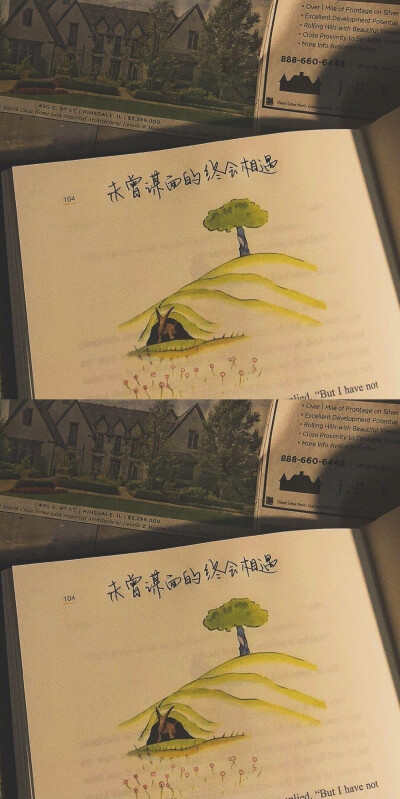 • Over 1 Mile of Frontage on Silver
• Excellent Development Potential
• Rolling Hills with Beautiful
• Close Proximity to
• More Info
888-660-6448
HINSDALE, IL | $3,399,000
104
未曾谋面的终会相遇
"But I have not
• Over 1 Mile of Frontage on Silver
• Excellent Development Potential
• Rolling Hills with Beautiful
• Close Proximity to
• More Info Available
888-660-6448
HINSDALE, IL | $3,399,000
104
未曾谋面的终会相遇
"But I have not